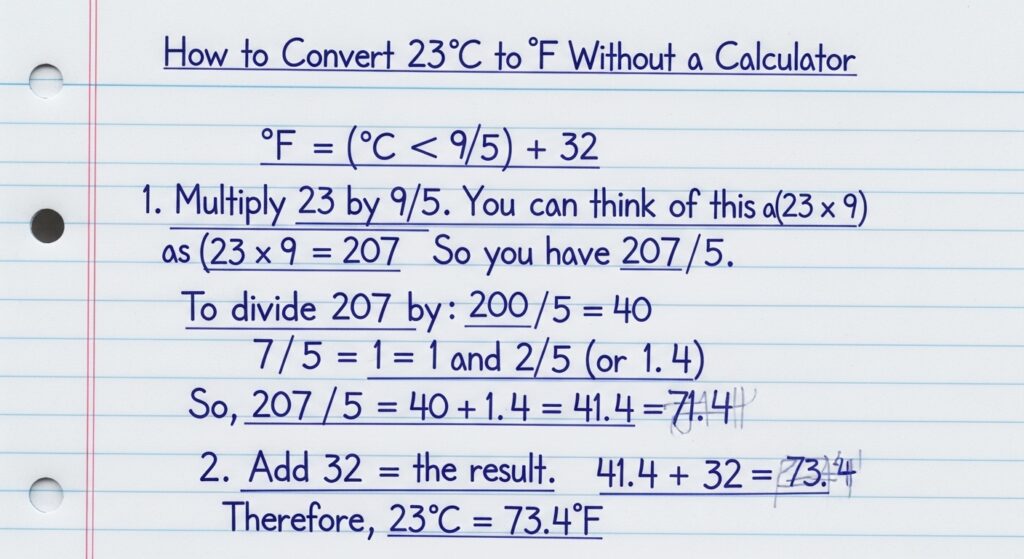 How to Convert 23°C to °F Without a Calculator
°F = (°C < 9/5) + 32
1. Multiply 23 by 9/5. You can think of this a(23 x 9)
as (23 x 9 = 207 So you have 207/5.
To divide 207 by: 200/5 = 40
7/5 = 1 = 1 and 2/5 (or 1.4)
So, 207/5 = 40 + 1.4 = 41.4 = 71.4
2. Add 32 = the result. 41.4 + 32 = 73.4
Therefore, 23°C = 73.4°F